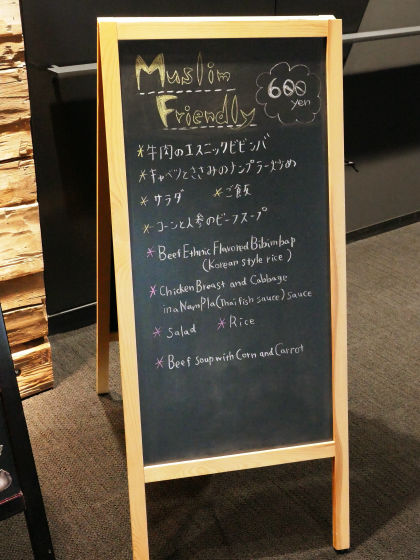 Muslim
Friendly
600
yen
*牛肉のエスニックビビンバ
*キャベツとささみのナンプラー炒め
*サラダ *ご飯
*コーンと人参のビーフスープ
*Beef Ethnic Flavored Bibimbap
(Korean style rice)
*Chicken Breast and Cabbage
in a Nam Pla (Thai fish sauce) sauce
*Salad *Rice
*Beef soup with Corn and Carrot